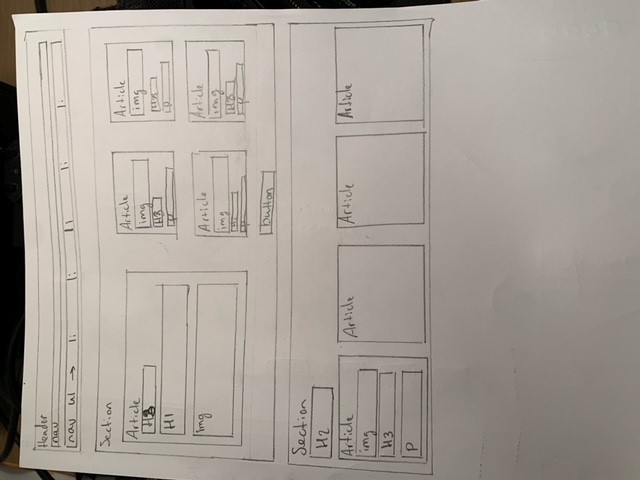 Header
nav
nav ul → li li li li li
Section
Article
H1
img
Article
img
H3
P
Article
img
H3
P
Article
img
H3
P
Article
img
H3
P
button
Section
H2
Article
img
H3
P
Article
Article
Article